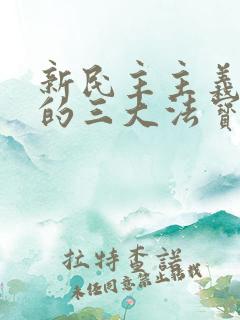 新民主主义
的三大法宝
杜特查诺
未经同意禁止转载